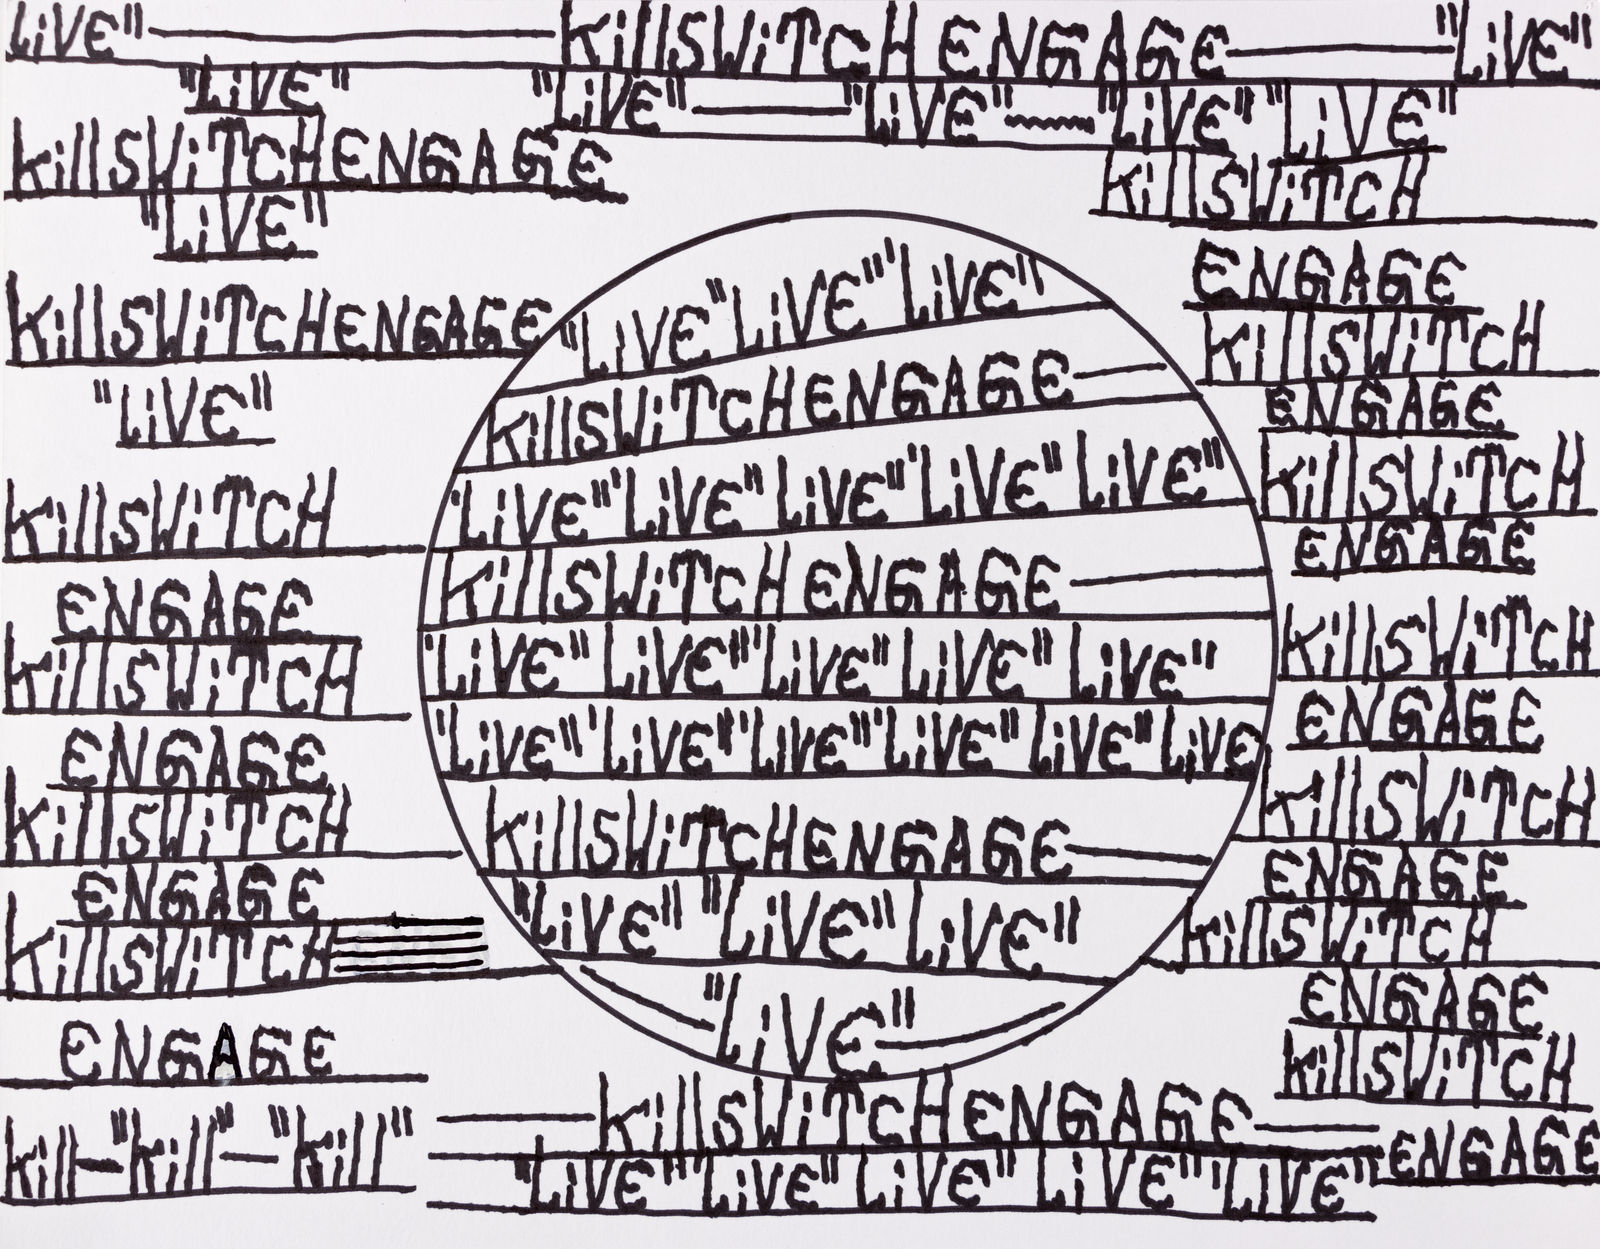 LiVE" KillSWiTCH ENGAGE "LiVE"
"LiVE"
"LiVE" "LiVE" "LiVE" "LiVE"
KillSWiTCHENGAGE
"LiVE"
KillSWiTCHENGAGE
"LiVE"
KillSWiTCH
ENGAGE
KillSWiTCH
ENGAGE
KillSWiTCH
ENGAGE
KillSWiTCH
ENGAGE
Kill-"Kill"-"Kill"
"LiVE" "LiVE" 'LiVE"
KillSWiTCHENGAGE
'LiVE" 'LiVE" LiVE" 'LiVE" LiVE"
KillSWiTCH ENGAGE
'LiVE" LiVE" 'LiVE" LiVE" LiVE"
'LiVE" 'LiVE" 'LiVE" 'LiVE" LiVE" LiVE
KillSWiTCHENGAGE
"LiVE" "LiVE" LiVE"
"LiVE"
KillSWiTCH
ENGAGE
KillSWiTCH
ENGAGE
KillSWiTCH
ENGAGE
KillSWiTCH
ENGAGE
KillSWiTCH
ENGAGE
KillSWiTCH
ENGAGE
KillSWiTCH
ENGAGE
KillSWiTCHENGAGE
"LiVE" 'LiVE" LiVE" LiVE" "LiVE"